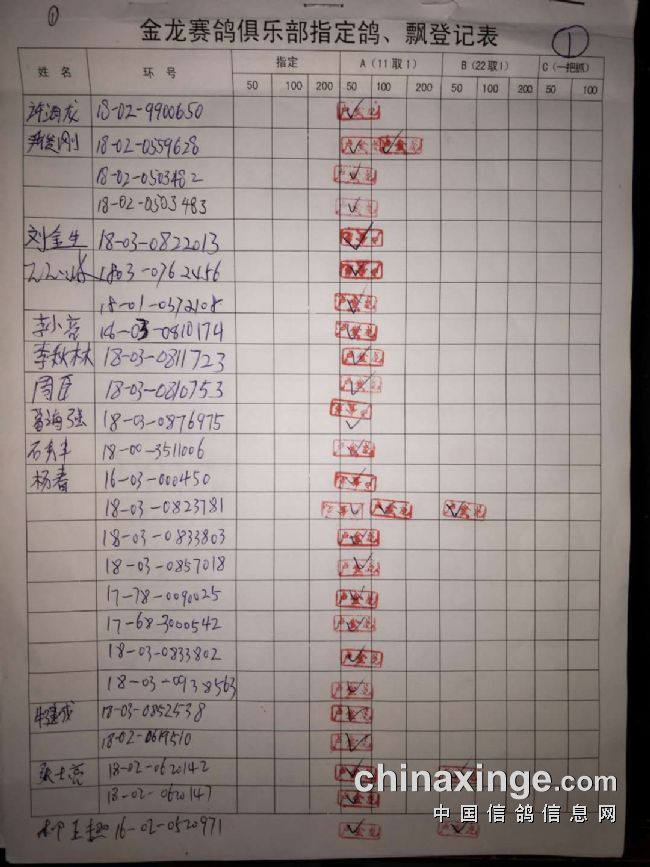 ①
金龙赛鸽俱乐部指定鸽、飘登记表
①
姓名 环号 指定 A(11取1) B(22取1) C(一把抓)
50 100 200 50 100 200 50 100 200 50 100
18-02-9900650
刚 18-02-0559628
18-02-0503482
18-02-0503483
刘金生 18-03-0822013
1803-0762456
18-01-0372108
李小亮 16-03-0810174
李秋林 18-03-0811723
周臣 18-03-0810753
海强 18-03-0876975
石秀丰 18-00-3511006
杨春 16-03-000450
18-03-0823781
18-03-0833803
18-03-0857018
17-78-0090025
17-68-3000542
18-03-0833802
18-03-0938563
18-03-0852538
18-02-0619510
张士亮 18-02-0620142
18-02-0620147
16-02-0520971
chinaxinge.com
中国信鸽信息网